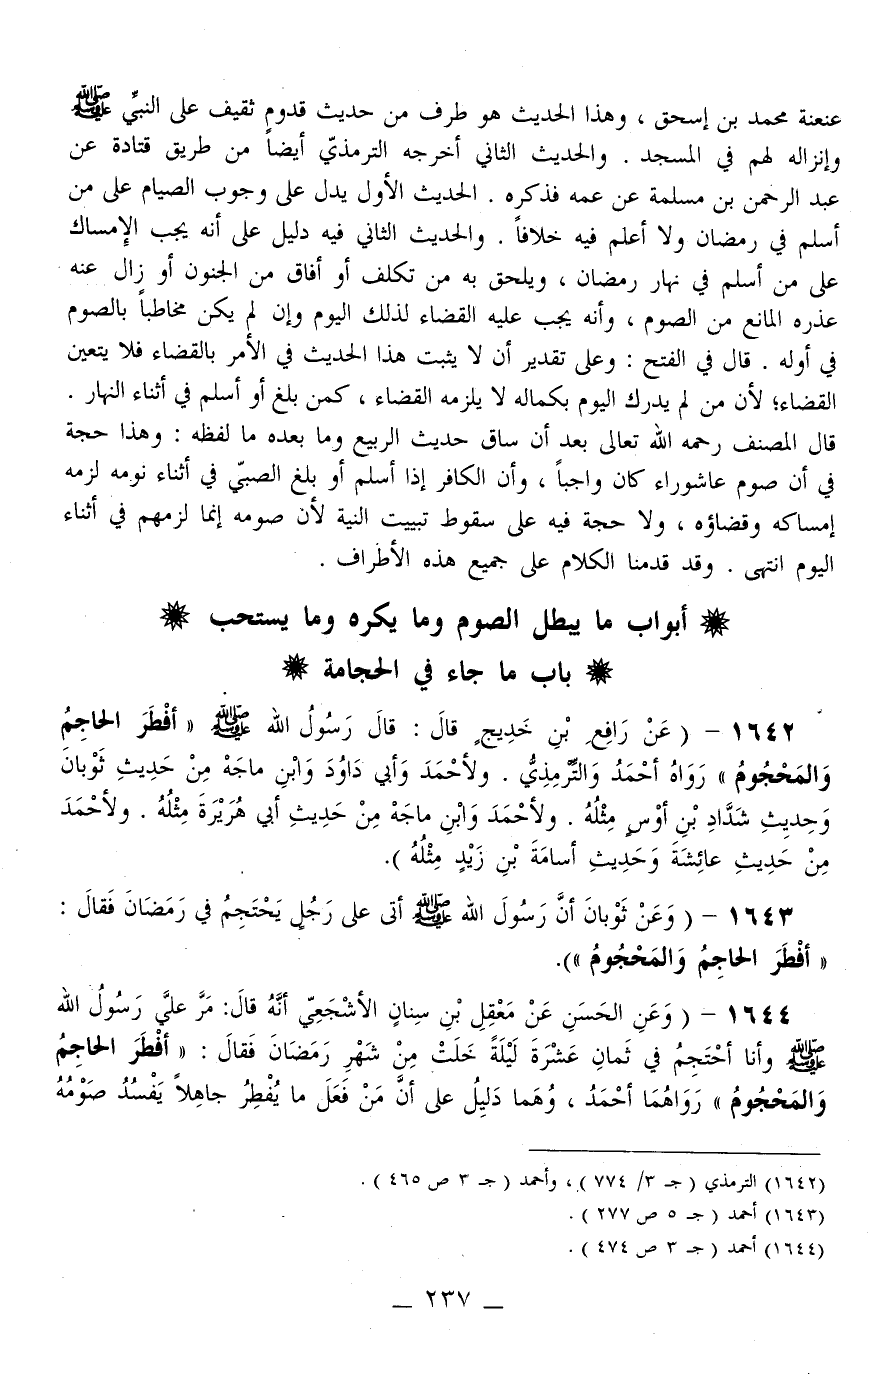 عنعنة محمد بن إسحق ، وهذا الحديث هو طرف من حديث قدوم ثقيف على النبيِّ ﷺ
وإنزاله لهم في المسجد . والحديث الثاني أخرجه الترمذيّ أيضاً من طريق قتادة عن
عبد الرحمن بن مسلمة عن عمه فذكره . الحديث الأول يدل على وجوب الصيام على من
أسلم في رمضان ولا أعلم فيه خلافاً . والحديث الثاني فيه دليل على أنه يجب الإمساك
على من أسلم في نهار رمضان ، ويلحق به من تكلف أو أفاق من الجنون أو زال عنه
عذره المانع من الصوم ، وأنه يجب عليه القضاء لذلك اليوم وإن لم يكن مخاطباً بالصوم
في أوله . قال في الفتح : وعلى تقدير أن لا يثبت هذا الحديث في الأمر بالقضاء فلا يتعين
القضاء؛ لأن من لم يدرك اليوم بكماله لا يلزمه القضاء ، كمن بلغ أو أسلم في أثناء النهار .
قال المصنف رحمه الله تعالى بعد أن ساق حديث الربيع وما بعده ما لفظه : وهذا حجة
في أن صوم عاشوراء كان واجباً ، وأن الكافر إذا أسلم أو بلغ الصبيّ في أثناء نومه لزمه
إمساكه وقضاؤه ، ولا حجة فيه على سقوط تبييت النية لأن صومه إنما لزمهم في أثناء
اليوم انتهى . وقد قدمنا الكلام على جميع هذه الأطراف .
أبواب ما يبطل الصوم وما يكره وما يستحب
باب ما جاء في الحجامة
١٦٤٢ - ( عَنْ رَافِعِ بْنِ خَدِيجٍ قالَ : قالَ رَسُولُ الله ﷺ « أَفْطَرَ الحاجِمُ
وَالمَحْجُومُ » رَوَاهُ أَحْمَدُ وَالتِّرْمِذِيُّ . ولأَحْمَدَ وَأَبي دَاوُدَ وَابْنِ ماجَهْ مِنْ حَدِيثِ ثَوْبانَ
وَحِدِيثِ شَدَّادِ بْنِ أَوْسٍ مِثْلُهُ . ولأَحْمَدَ وَابْنِ ماجَهْ مِنْ حَدِيثِ أَبي هُرَيْرَةَ مِثْلُهُ . ولأَحْمَدَ
مِنْ حَدِيثِ عائِشَةَ وَحَدِيثِ أُسامَةَ بْنِ زَيْدٍ مِثْلُهُ ).
١٦٤٣ - ( وَعَنْ ثَوْبانَ أَنَّ رَسُولَ الله ﷺ أَتى على رَجُلٍ يَحْتَجِمُ في رَمَضَانَ فَقالَ :
« أَفْطَرَ الحاجِمُ وَالمَحْجُومُ »).
١٦٤٤ - ( وَعَنِ الحَسَنِ عَنْ مَعْقِلِ بْنِ سِنانٍ الأَشْجَعِيّ أَنَّهُ قالَ: مَرَّ عَلَيَّ رَسُولُ الله
ﷺ وأَنا أَحْتَجِمُ في ثَمانِ عَشْرَةَ لَيْلَةً خَلَتْ مِنْ شَهْرِ رَمَضَانَ فَقالَ : « أَفْطَرَ الحاجِمُ
وَالمَحْجُومُ » رَوَاهُمَا أَحْمَدُ ، وَهُمَا دَلِيلُ على أَنَّ مَنْ فَعَلَ ما يُفْطِرُ جاهِلاً يَفْسُدُ صَوْمُهُ
(١٦٤٢) الترمذي ( جـ ٣/ ٧٧٤ ) ، وأحمد ( جـ ٣ ص ٤٦٥ ) .
(١٦٤٣) أحمد ( جـ ٥ ص ٢٧٧ ) .
(١٦٤٤) أحمد ( جـ ٣ ص ٤٧٤ ) .
— ٢٣٧ —